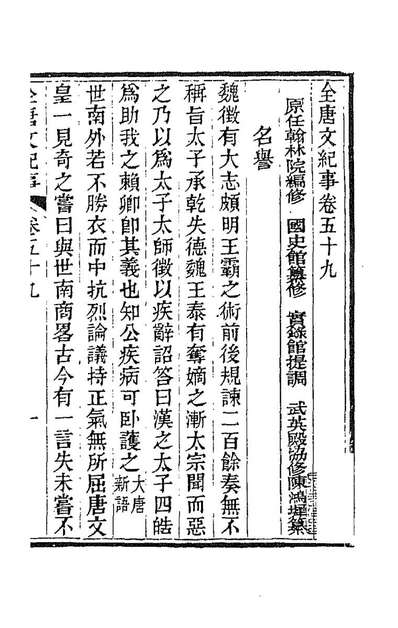 全唐文紀事卷五十九
原任翰林院編修　國史館纂修　實錄館提調　武英殿協修陳鴻墀纂
名譽
魏徵有大志頗明王霸之術前後規諫二百餘奏無不
稱旨太子承乾失德魏王泰有奪嫡之漸太宗聞而惡
之乃以爲太子太師徵以疾辭詔答曰漢之太子四皓
爲助我之賴卿卽其義也知公疾病可臥護之大唐新語
世南外若不勝衣而中抗烈論議持正氣無所屈唐文
皇一見奇之嘗曰與世南商畧古今有一言失未嘗不
全唐文紀事　卷五十九　一